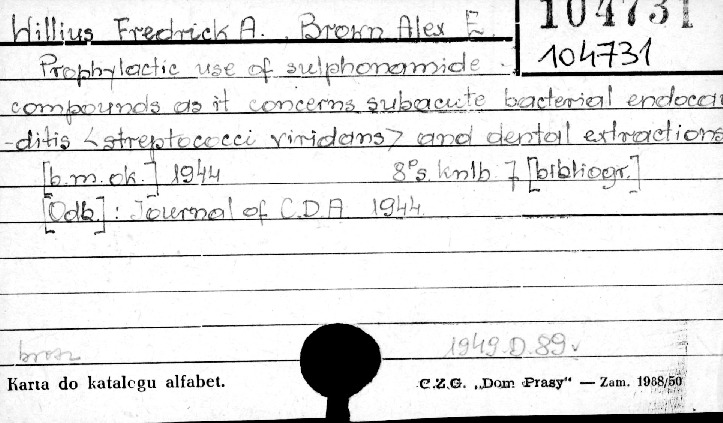 104731
Willius Fredrick A., Brown Alex E.
104731
Prophylactic use of sulphonamide
compounds as it concerns subacute bacterial endocar
-ditis <streptococci viridans> and dental extractions
[b.m.ok.] 1944 8° s. knlb. 7 [bibliogr.]
[Odb.]: Journal of C.D.A 1944
brosz 1949.D.89
Karta do katalogu alfabet. C.Z.G. „Dom Prasy“ — Zam. 1988/50